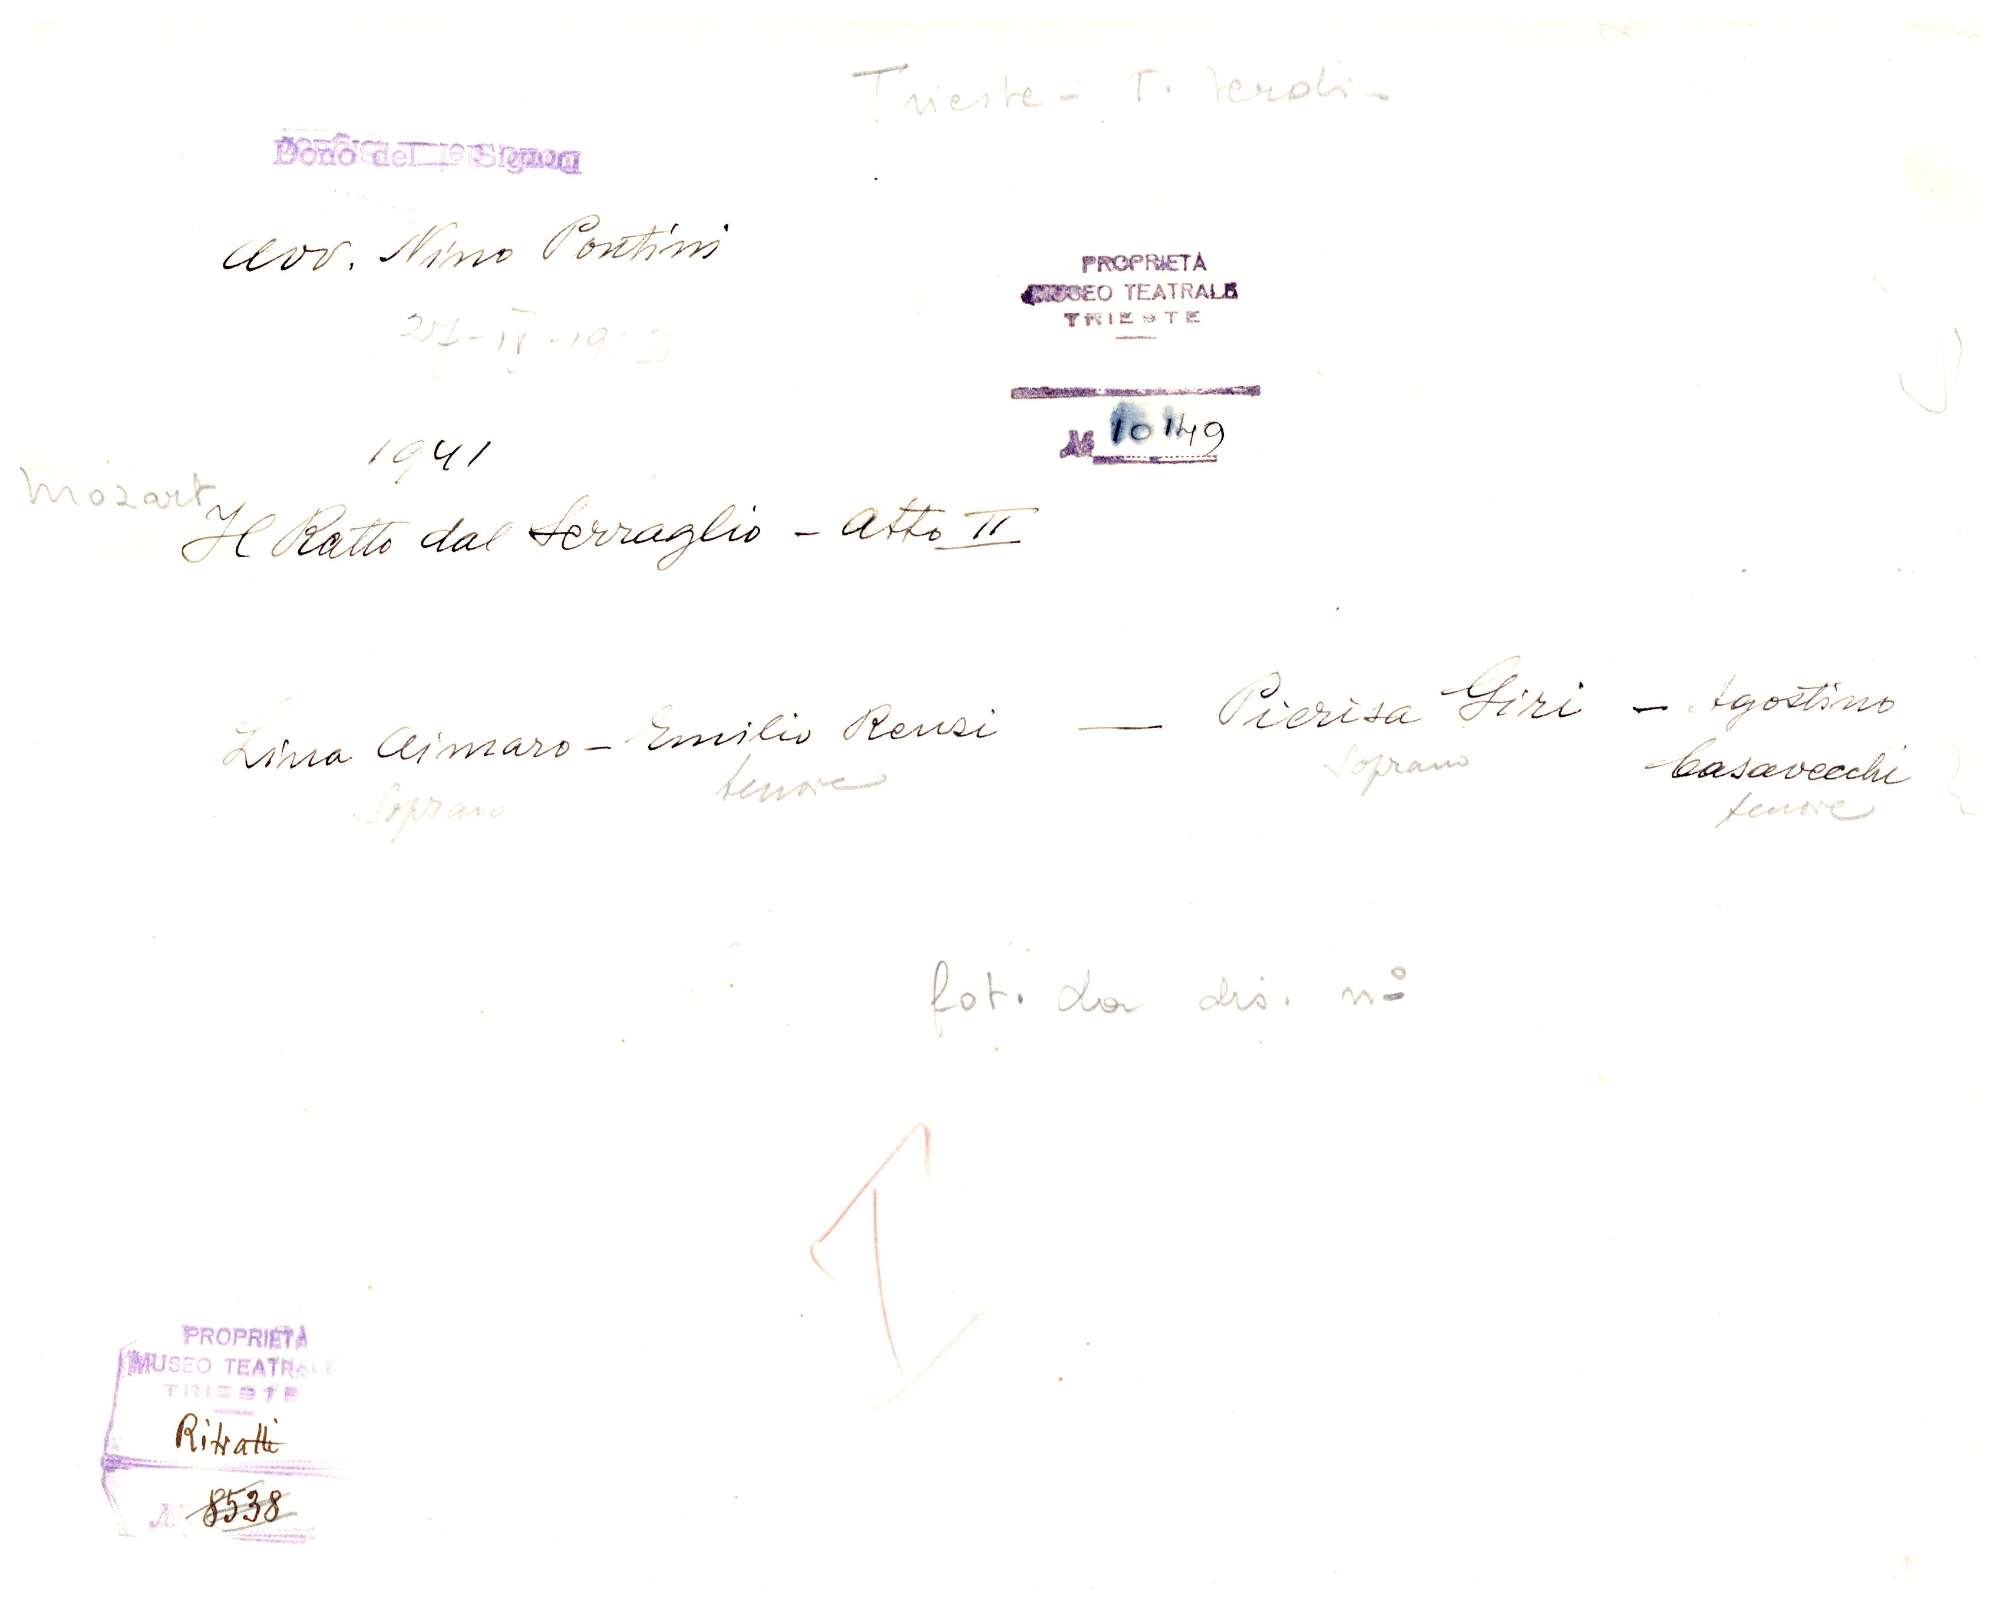 Trieste - T. Verdi -
Dono del
avv. Nino Pontini
PROPRIETÀ
MUSEO TEATRALE
TRIESTE
N 10149
1941
Mozart
Il Ratto dal Serraglio - Atto II
Lina Aimaro - Emilio Renzi — Pierisa Giri - Agostino
Casavecchi
soprano tenore soprano tenore
fot. da dis. nº
PROPRIETÀ
MUSEO TEATRALE
TRIESTE
Ritratti
N 8538